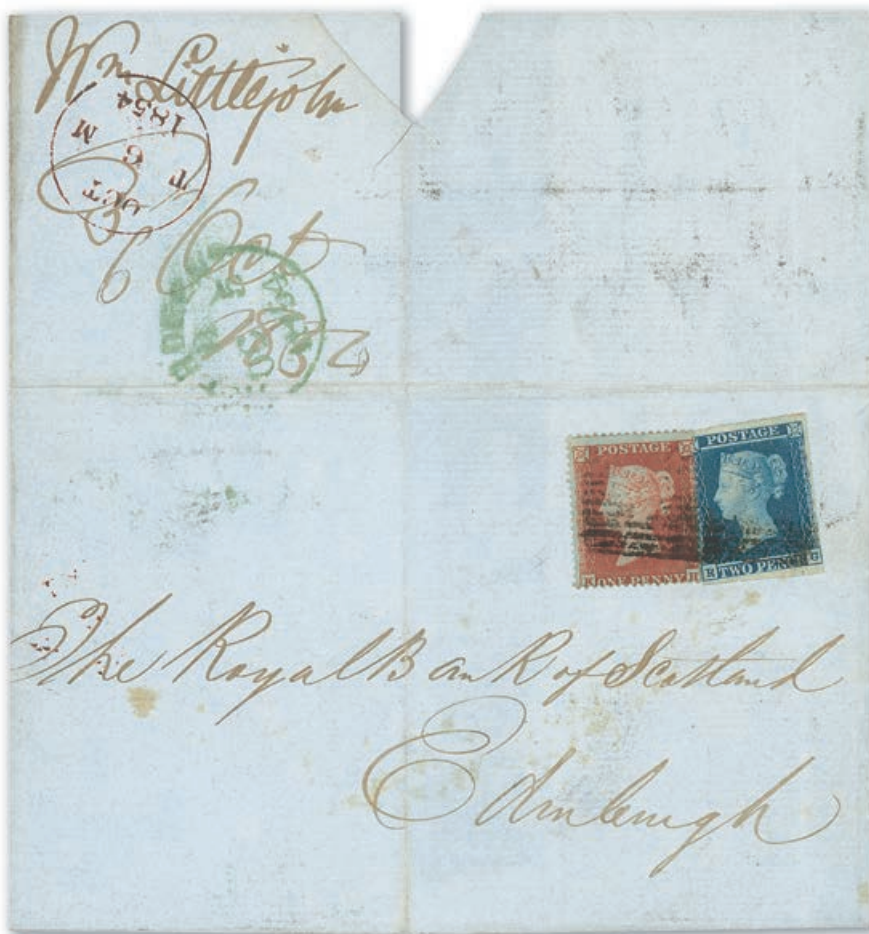 Wm Littlejohn
OCT
T 6 M
1854
6 Oct
1854
POSTAGE
ONE PENNY
POSTAGE
R TWO PENCE G
The Royal Bank of Scotland
Edinburgh